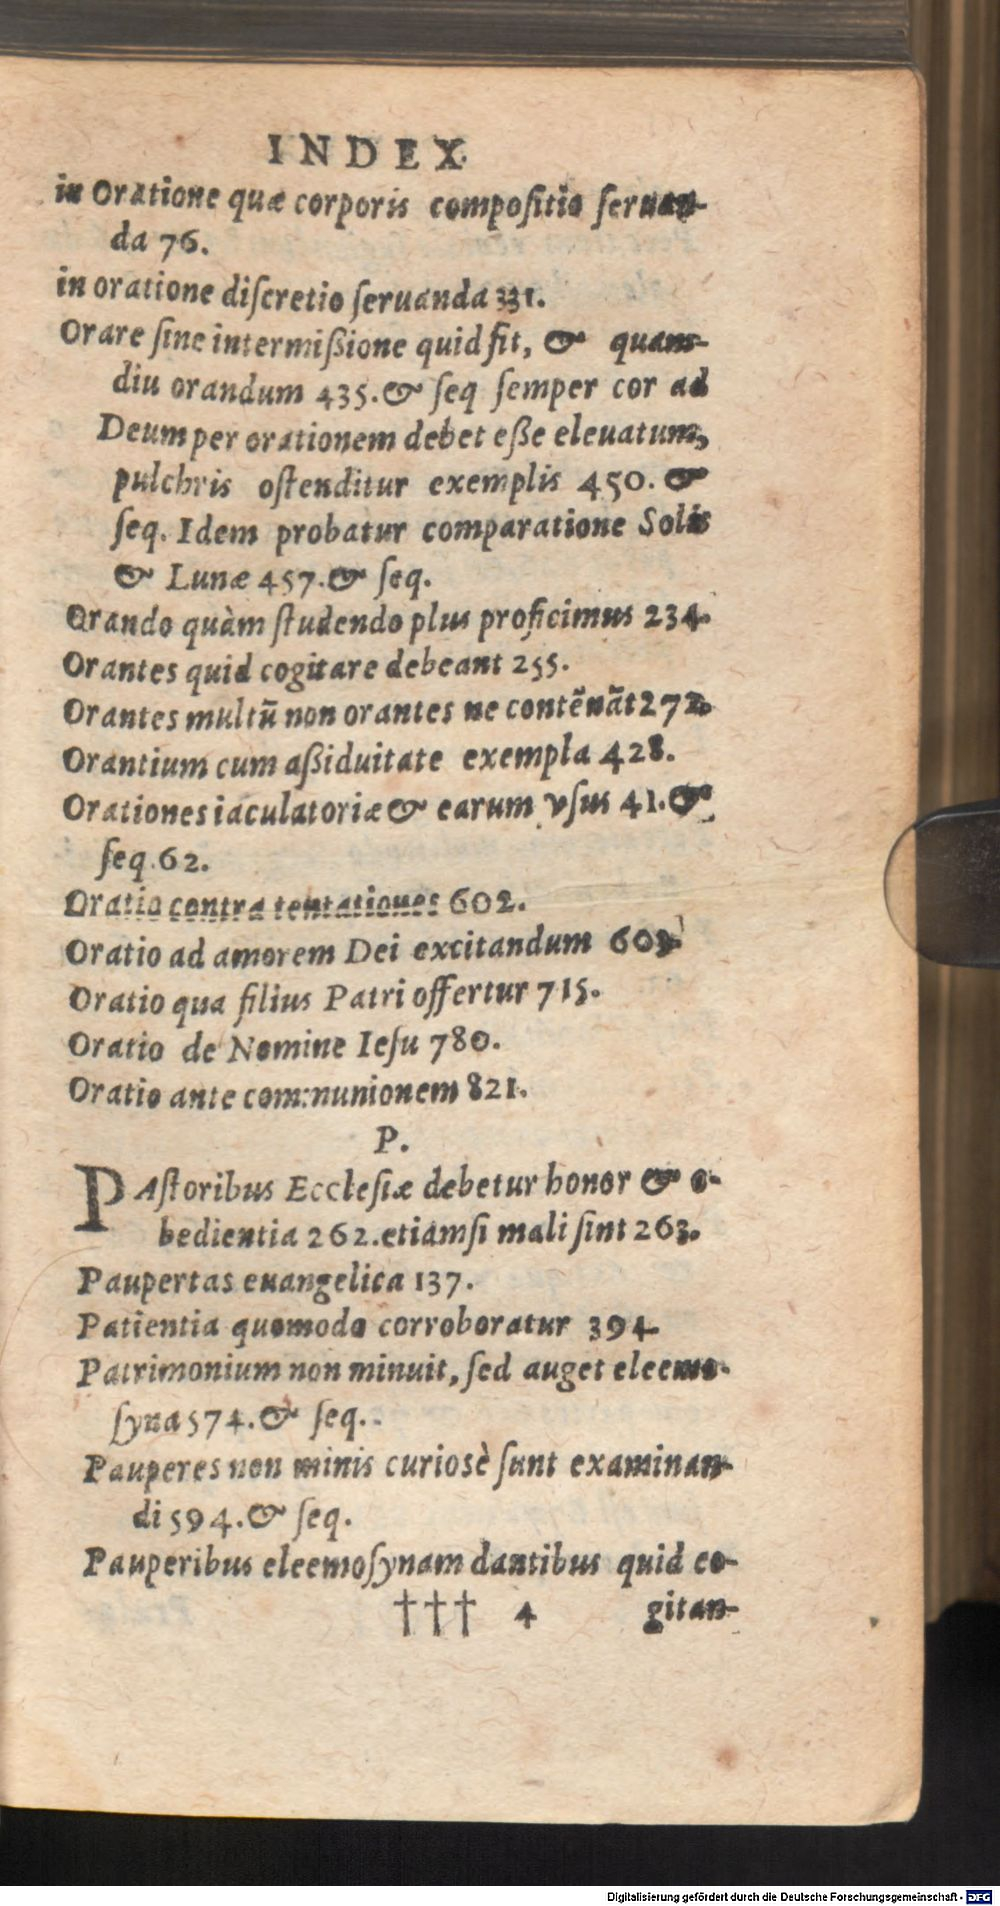 INDEX.
in Oratione quæ corporis compoſitio ſeruan-
da 76.
in oratione diſcretio ſeruanda 331.
Orare ſine intermißione quid ſit, & quam-
diu orandum 435. & ſeq ſemper cor ad
Deum per orationem debet eße eleuatum,
pulchris oſtenditur exemplis 450. &
ſeq. Idem probatur comparatione Solis
& Lunæ 457. & ſeq.
Orando quàm ſtudendo plus proficimus 234.
Orantes quid cogitare debeant 255.
Orantes multũ non orantes ne contẽnãt 272.
Orantium cum aßiduitate exempla 428.
Orationes iaculatoriæ & earum vſus 41. &
ſeq. 62.
Oratio contra tentationes 602.
Oratio ad amorem Dei excitandum 603.
Oratio qua filius Patri offertur 715.
Oratio de Nomine Ieſu 780.
Oratio ante communionem 821.
P.
PAſtoribus Eccleſiæ debetur honor & o-
bedientia 262. etiamſi mali ſint 263.
Paupertas euangelica 137.
Patientia quomodo corroboratur 394.
Patrimonium non minuit, ſed auget eleemo-
ſyna 574. & ſeq.
Pauperes non minis curiosè ſunt examinan-
di 594. & ſeq.
Pauperibus eleemoſynam dantibus quid co-
††† 4 gitan-
Digitalisierung gefördert durch die Deutsche Forschungsgemeinschaft - DFG